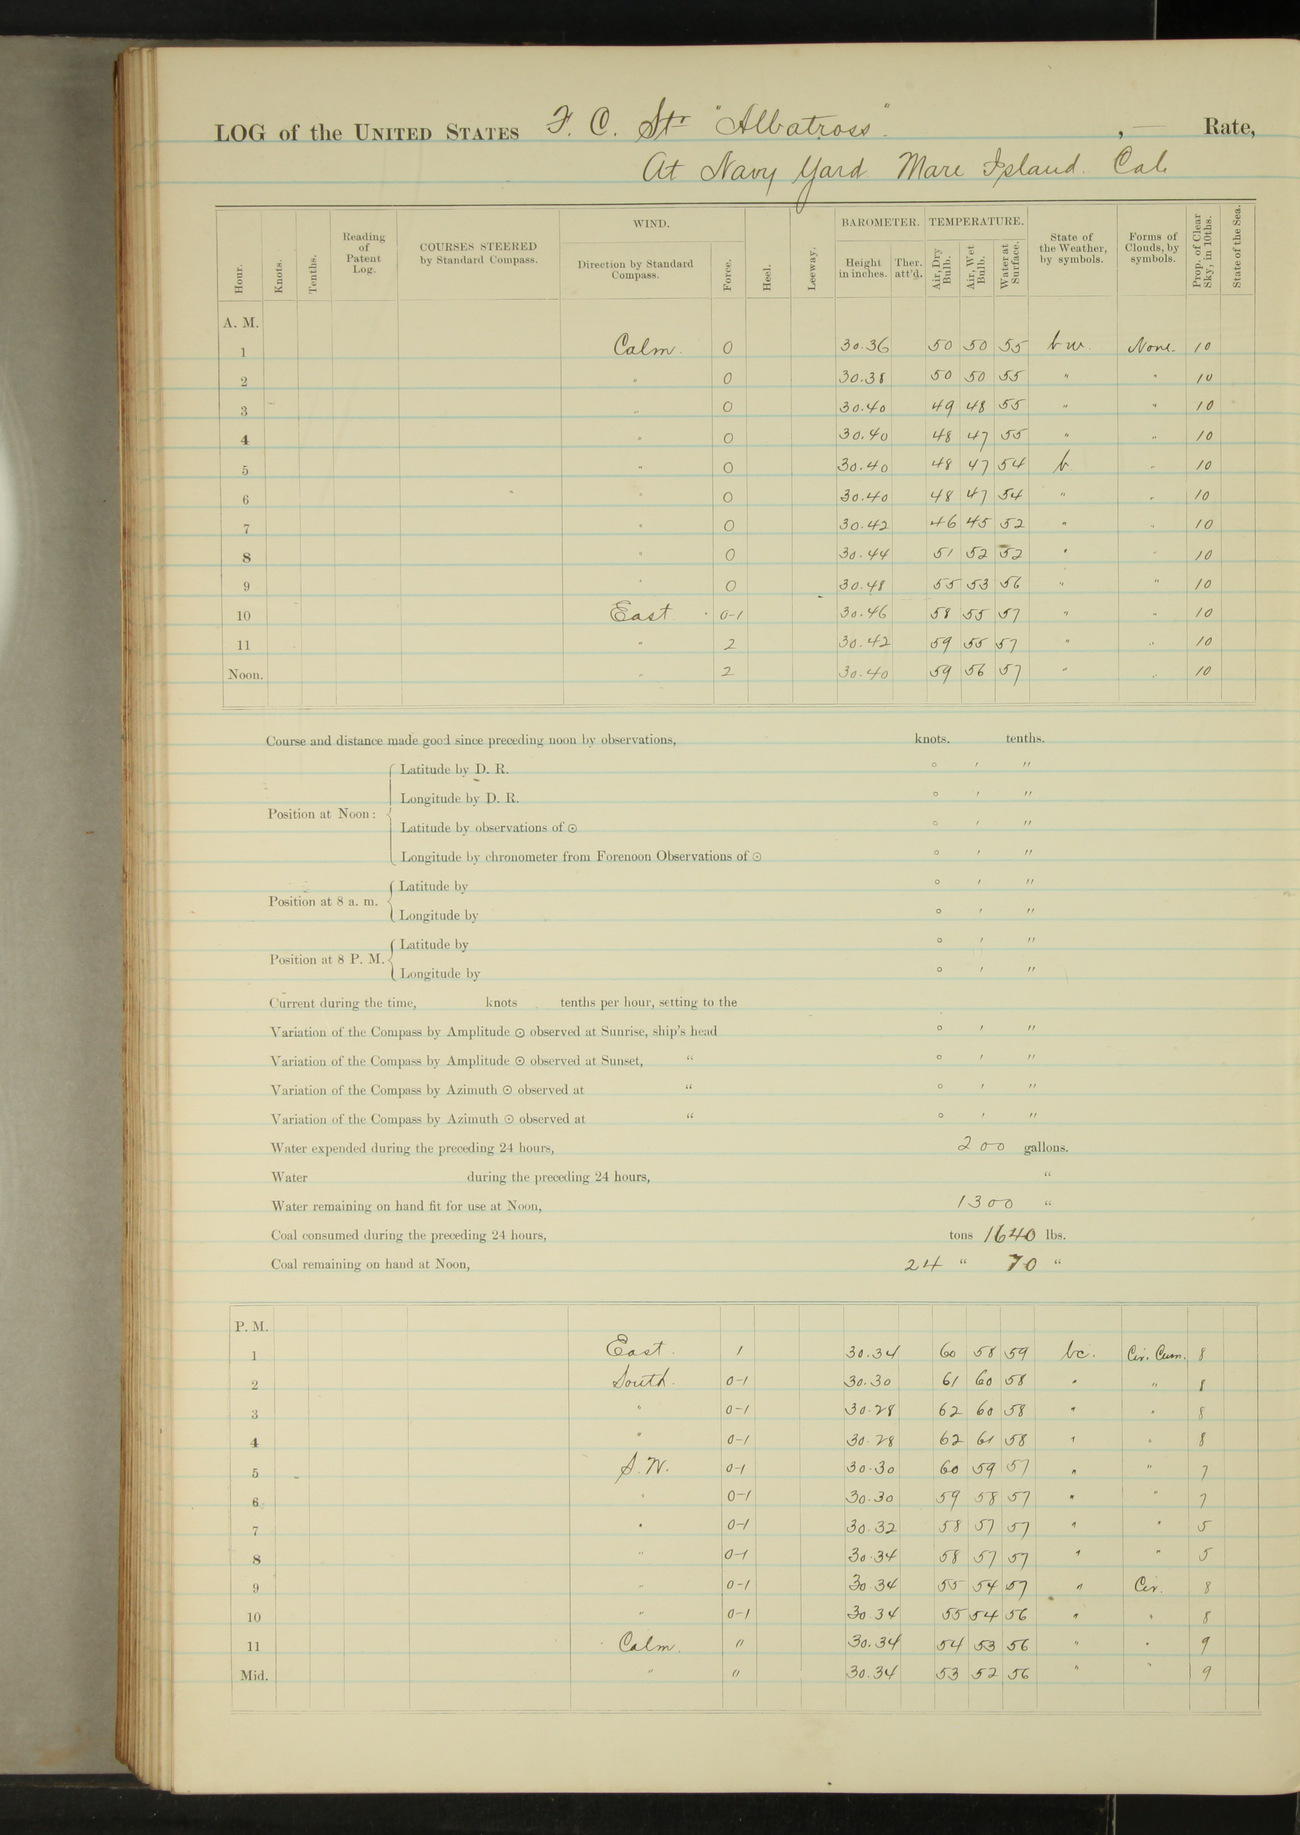 LOG of the UNITED STATES F. C. Str "Albatross", — Rate,
At Navy Yard Mare Island. Cal.
Hour. Knots. Tenths. Reading of Patent Log. COURSES STEERED by Standard Compass. WIND. Direction by Standard Compass. Force. Heel. Leeway. BAROMETER. Height in inches. Ther. att'd. TEMPERATURE. Air, Dry Bulb. Air, Wet Bulb. Water at Surface. State of the Weather, by symbols. Forms of Clouds, by symbols. Prop. of Clear Sky, in 10ths. State of the Sea.
A. M.
1 Calm. 0 30.36 50 50 55 b w. None. 10
2 " 0 30.38 50 50 55 " " 10
3 " 0 30.40 49 48 55 " " 10
4 " 0 30.40 48 47 55 " " 10
5 " 0 30.40 48 47 54 b " 10
6 " 0 30.40 48 47 54 " " 10
7 " 0 30.42 46 45 52 " " 10
8 " 0 30.44 51 52 52 " " 10
9 " 0 30.48 55 53 56 " " 10
10 East 0-1 30.46 58 55 57 " " 10
11 " 2 30.42 59 55 57 " " 10
Noon. " 2 30.40 59 56 57 " " 10
Course and distance made good since preceding noon by observations, knots. tenths.
Latitude by D. R. ° ′ ″
Longitude by D. R. ° ′ ″
Position at Noon:
Latitude by observations of ☉ ° ′ ″
Longitude by chronometer from Forenoon Observations of ☉ ° ′ ″
Latitude by ° ′ ″
Position at 8 a. m.
Longitude by ° ′ ″
Latitude by ° ′ ″
Position at 8 P. M.
Longitude by ° ′ ″
Current during the time, knots tenths per hour, setting to the
Variation of the Compass by Amplitude ☉ observed at Sunrise, ship's head ° ′ ″
Variation of the Compass by Amplitude ☉ observed at Sunset, " ° ′ ″
Variation of the Compass by Azimuth ☉ observed at " ° ′ ″
Variation of the Compass by Azimuth ☉ observed at " ° ′ ″
Water expended during the preceding 24 hours, 200 gallons.
Water during the preceding 24 hours, "
Water remaining on hand fit for use at Noon, 1300 "
Coal consumed during the preceding 24 hours, tons 1640 lbs.
Coal remaining on hand at Noon, 24 " 70 "
P. M.
1 East. 1 30.34 60 58 59 bc. Cir. Cum. 8
2 South. 0-1 30.30 61 60 58 " " 8
3 " 0-1 30.28 62 60 58 " " 8
4 " 0-1 30.28 62 61 58 " " 8
5 S. W. 0-1 30.30 60 59 57 " " 7
6 " 0-1 30.30 59 58 57 " " 7
7 " 0-1 30.32 58 57 57 " " 5
8 " 0-1 30.34 58 57 57 " " 5
9 " 0-1 30.34 55 54 57 " Cir. 8
10 " 0-1 30.34 55 54 56 " " 8
11 Calm. " 30.34 54 53 56 " " 9
Mid. " " 30.34 53 52 56 " " 9